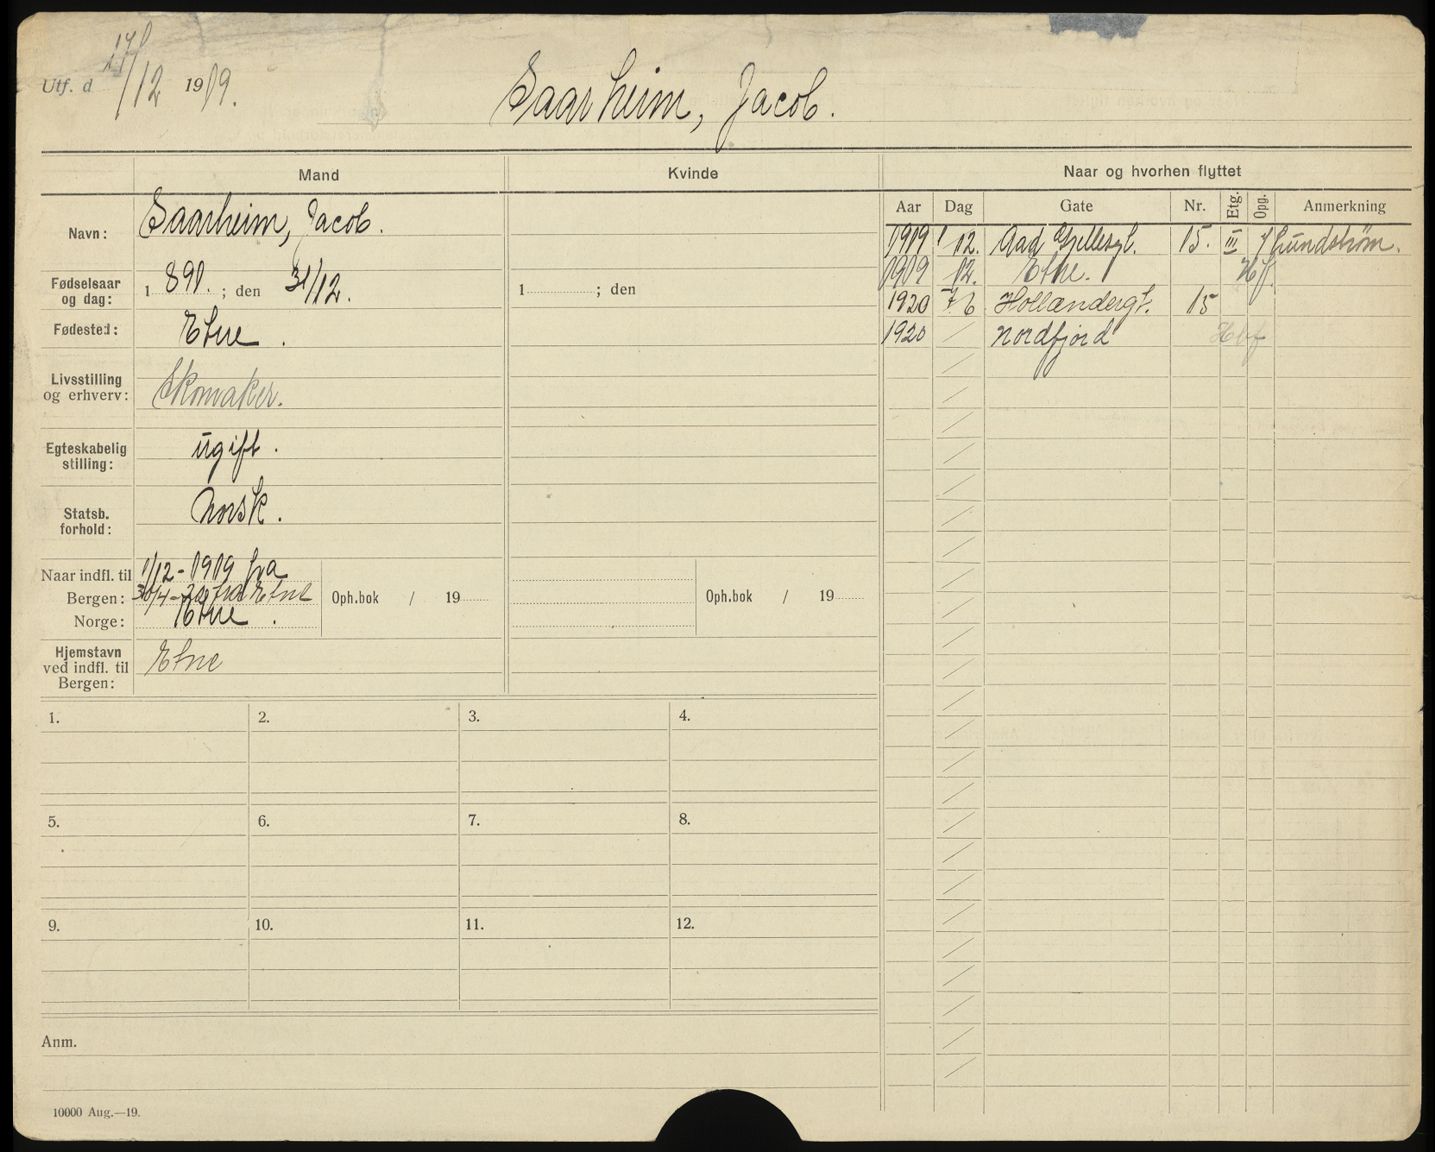 Utf. d 1/12 1919.
Saarheim, Jacob.
Mand
Kvinde
Naar og hvorhen flyttet
Aar Dag Gate Nr. Etg. Opg. Anmerkning
Navn: Saarheim, Jacob.
1919 1/12. Aad Gjellesgt. 15. III Lundstrøm.
1919 12. Etne.
1920 Hollændergt. 15
1920 / Nordfjord
Fødselsaar og dag: 1891. ; den 31/12.
1 ; den
Fødested: Etne.
Livsstilling og erhverv: Skomaker.
Egteskabelig stilling: ugift.
Statsb. forhold: Norsk.
Naar indfl. til 1/12-1919 fra
Bergen: 30/4-20 fra Etne
Norge: Etne.
Oph.bok / 19
Oph.bok / 19
Hjemstavn ved indfl. til Bergen: Etne
1. 2. 3. 4.
5. 6. 7. 8.
9. 10. 11. 12.
Anm.
10000 Aug.—19.